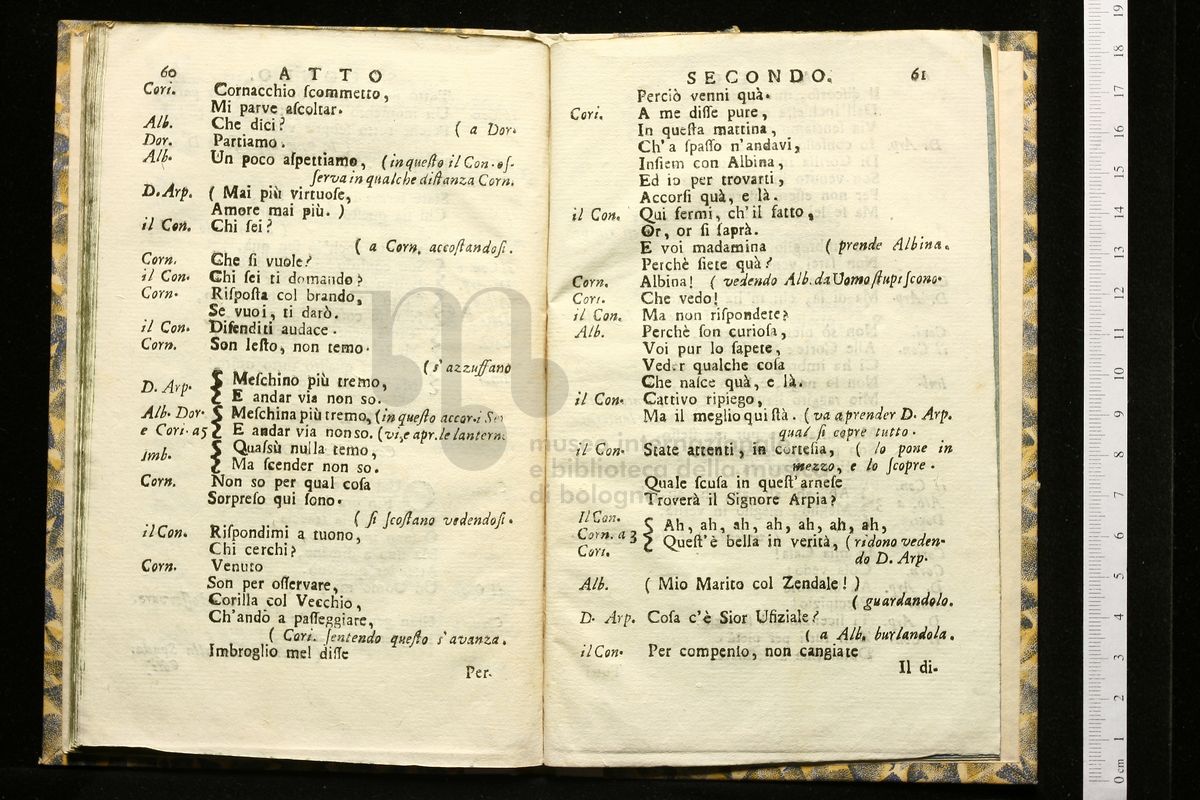 60 ATTO
Cori. Cornacchio ſcommetto,
Mi parve aſcoltar.
Alb. Che dici? ( a Dor.
Dor. Partiamo.
Alb. Un poco aſpettiamo, (in queſto il Con. oſ-
ſerva in qualche diſtanza Corn.
D. Arp. ( Mai più virtuoſe,
Amore mai più. )
il Con. Chi ſei?
( a Corn. accoſtandoſi.
Corn. Che ſi vuole?
il Con. Chi ſei ti domando?
Corn. Riſpoſta col brando,
Se vuoi, ti darò.
il Con. Difenditi audace.
Corn. Son leſto, non temo.
( s'azzuffano
D. Arp. Meſchino più tremo,
E andar via non so.
Alb. Dor. Meſchina più tremo, (in queſto accor. i
e Cori. a 5 E andar via non so. (vi, e apr. le lantern
Imb. Quaſsù nulla temo,
Ma ſcender non so.
Corn. Non so per qual coſa
Sorpreſo qui ſono.
( ſi ſcoſtano vedendoſi.
il Con. Riſpondimi a tuono,
Chi cerchi?
Corn. Venuto
Son per oſſervare,
Corilla col Vecchio,
Ch'andò a paſſeggiare,
( Cori. ſentendo queſto s'avanza.
Imbroglio mel diſſe
Per-
SECONDO. 61
Perciò venni quà.
Cori. A me diſſe pure,
In queſta mattina,
Ch'a ſpaſſo n'andavi,
Inſiem con Albina,
Ed io per trovarti,
Accorſi quà, e là.
il Con. Qui fermi, ch'il fatto,
Or, or ſi ſaprà.
E voi madamina ( prende Albina.
Perchè ſiete quà?
Corn. Albina! ( vedendo Alb. da Uomo ſtupiſcono.
Cori. Che vedo!
il Con. Ma non riſpondete?
Alb. Perchè ſon curioſa,
Voi pur lo ſapete,
Veder qualche coſa
Che naſce quà, e là.
il Con. Cattivo ripiego,
Ma il meglio qui ſtà. ( va a prender D. Arp.
qual ſi copre tutto.
il Con. State attenti, in corteſia, ( lo pone in
mezzo, e lo ſcopre.
Quale ſcuſa in queſt'arneſe
Troverà il Signore Arpia?
Il Con.
Corn. a 3 Ah, ah, ah, ah, ah, ah, ah,
Cori. Queſt'è bella in verità, (ridono veden-
do D. Arp.
Alb. ( Mio Marito col Zendale! )
( guardandolo.
D. Arp. Coſa c'è Sior Ufiziale?
( a Alb. burlandola.
il Con. Per compenſo, non cangiate
Il di-
museo internazionale
e biblioteca della musica
di bologna
0 cm 1 2 3 4 5 6 7 8 9 10 11 12 13 14 15 16 17 18 19